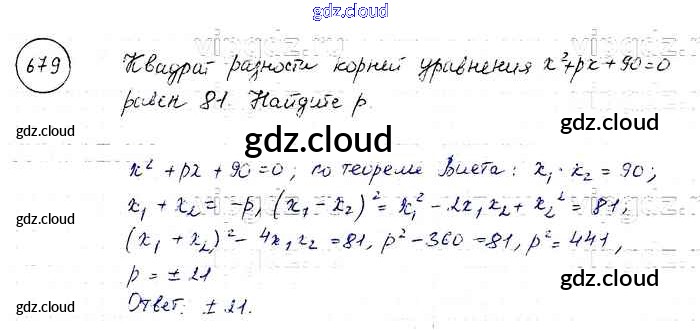 gdz.cloud
679 Квадрат разности корней уравнения x²+px+90=0
gdz.cloud gdz.cloud
равен 81. Найдите p.
gdz.cloud gdz.cloud
gdz.cloud
x² + px + 90 = 0; по теореме Виета: x₁ · x₂ = 90;
x₁ + x₂ = -p, (x₁ - x₂)² = x₁² - 2x₁x₂ + x₂² = 81,
(x₁ + x₂)² - 4x₁x₂ = 81, p² - 360 = 81, p² = 441,
p = ± 21
gdz.cloud gdz.cloud
Ответ: ± 21.
gdz.cloud gdz.cloud
gdz.cloud